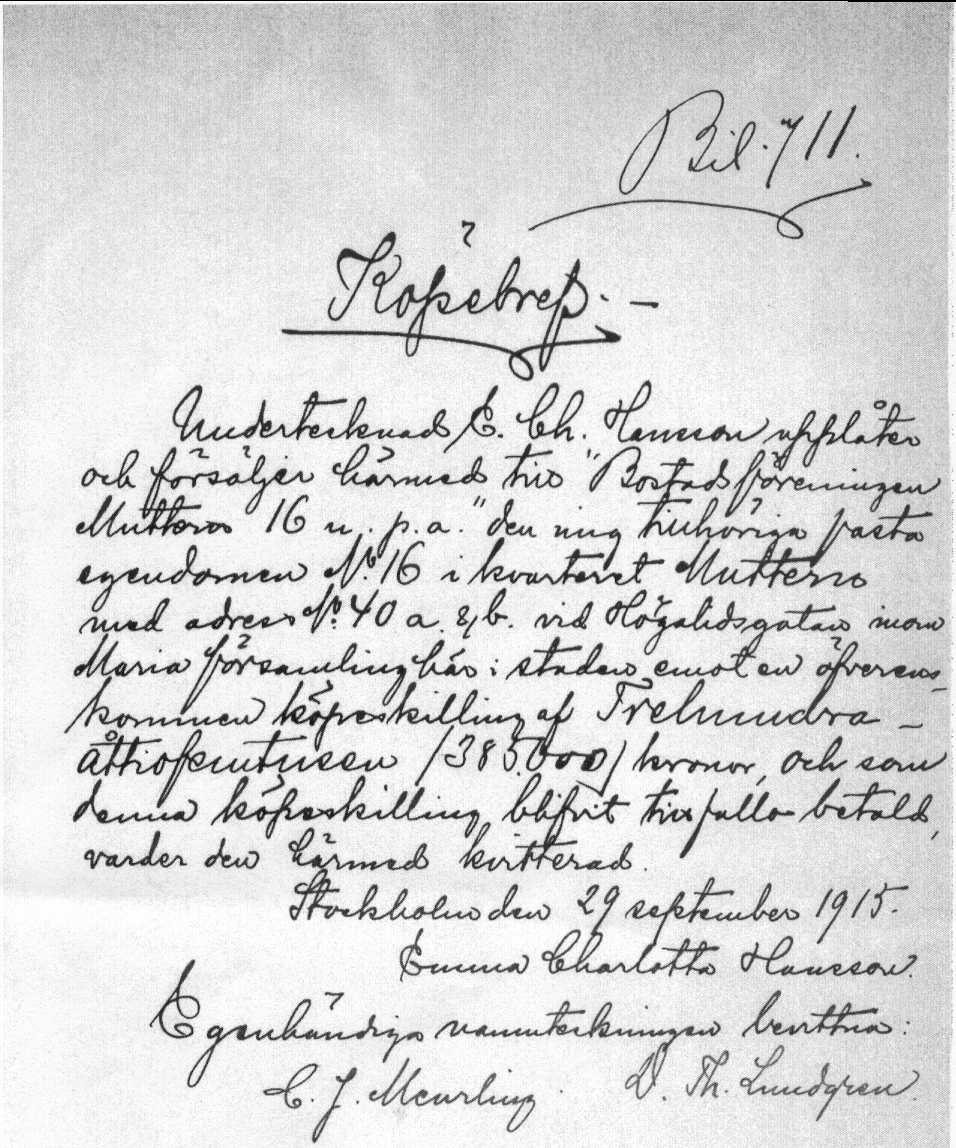 Bil. 711.
Köpebref. –
Undertecknad E. Ch. Hansson upplåter
och försäljer härmed till "Bostadsföreningen
Muttern 16 u. p. a." den mig tillhöriga fasta
egendomen No. 16 i kvarteret Muttern
med adress No. 40 a. & b. vid Högalidsgatan inom
Maria församling här i staden emot en öfverens-
kommen köpeskilling af Trehundra –
åttiofemtusen /385.000/ kronor, och som
denna köpeskilling blifvit till fullo betald,
varder den härmed kvitterad.
Stockholm den 29 september 1915.
Emma Charlotta Hansson.
Egenhändiga namnteckningen bevittna:
C. J. Meurling D. Th. Lundgren.